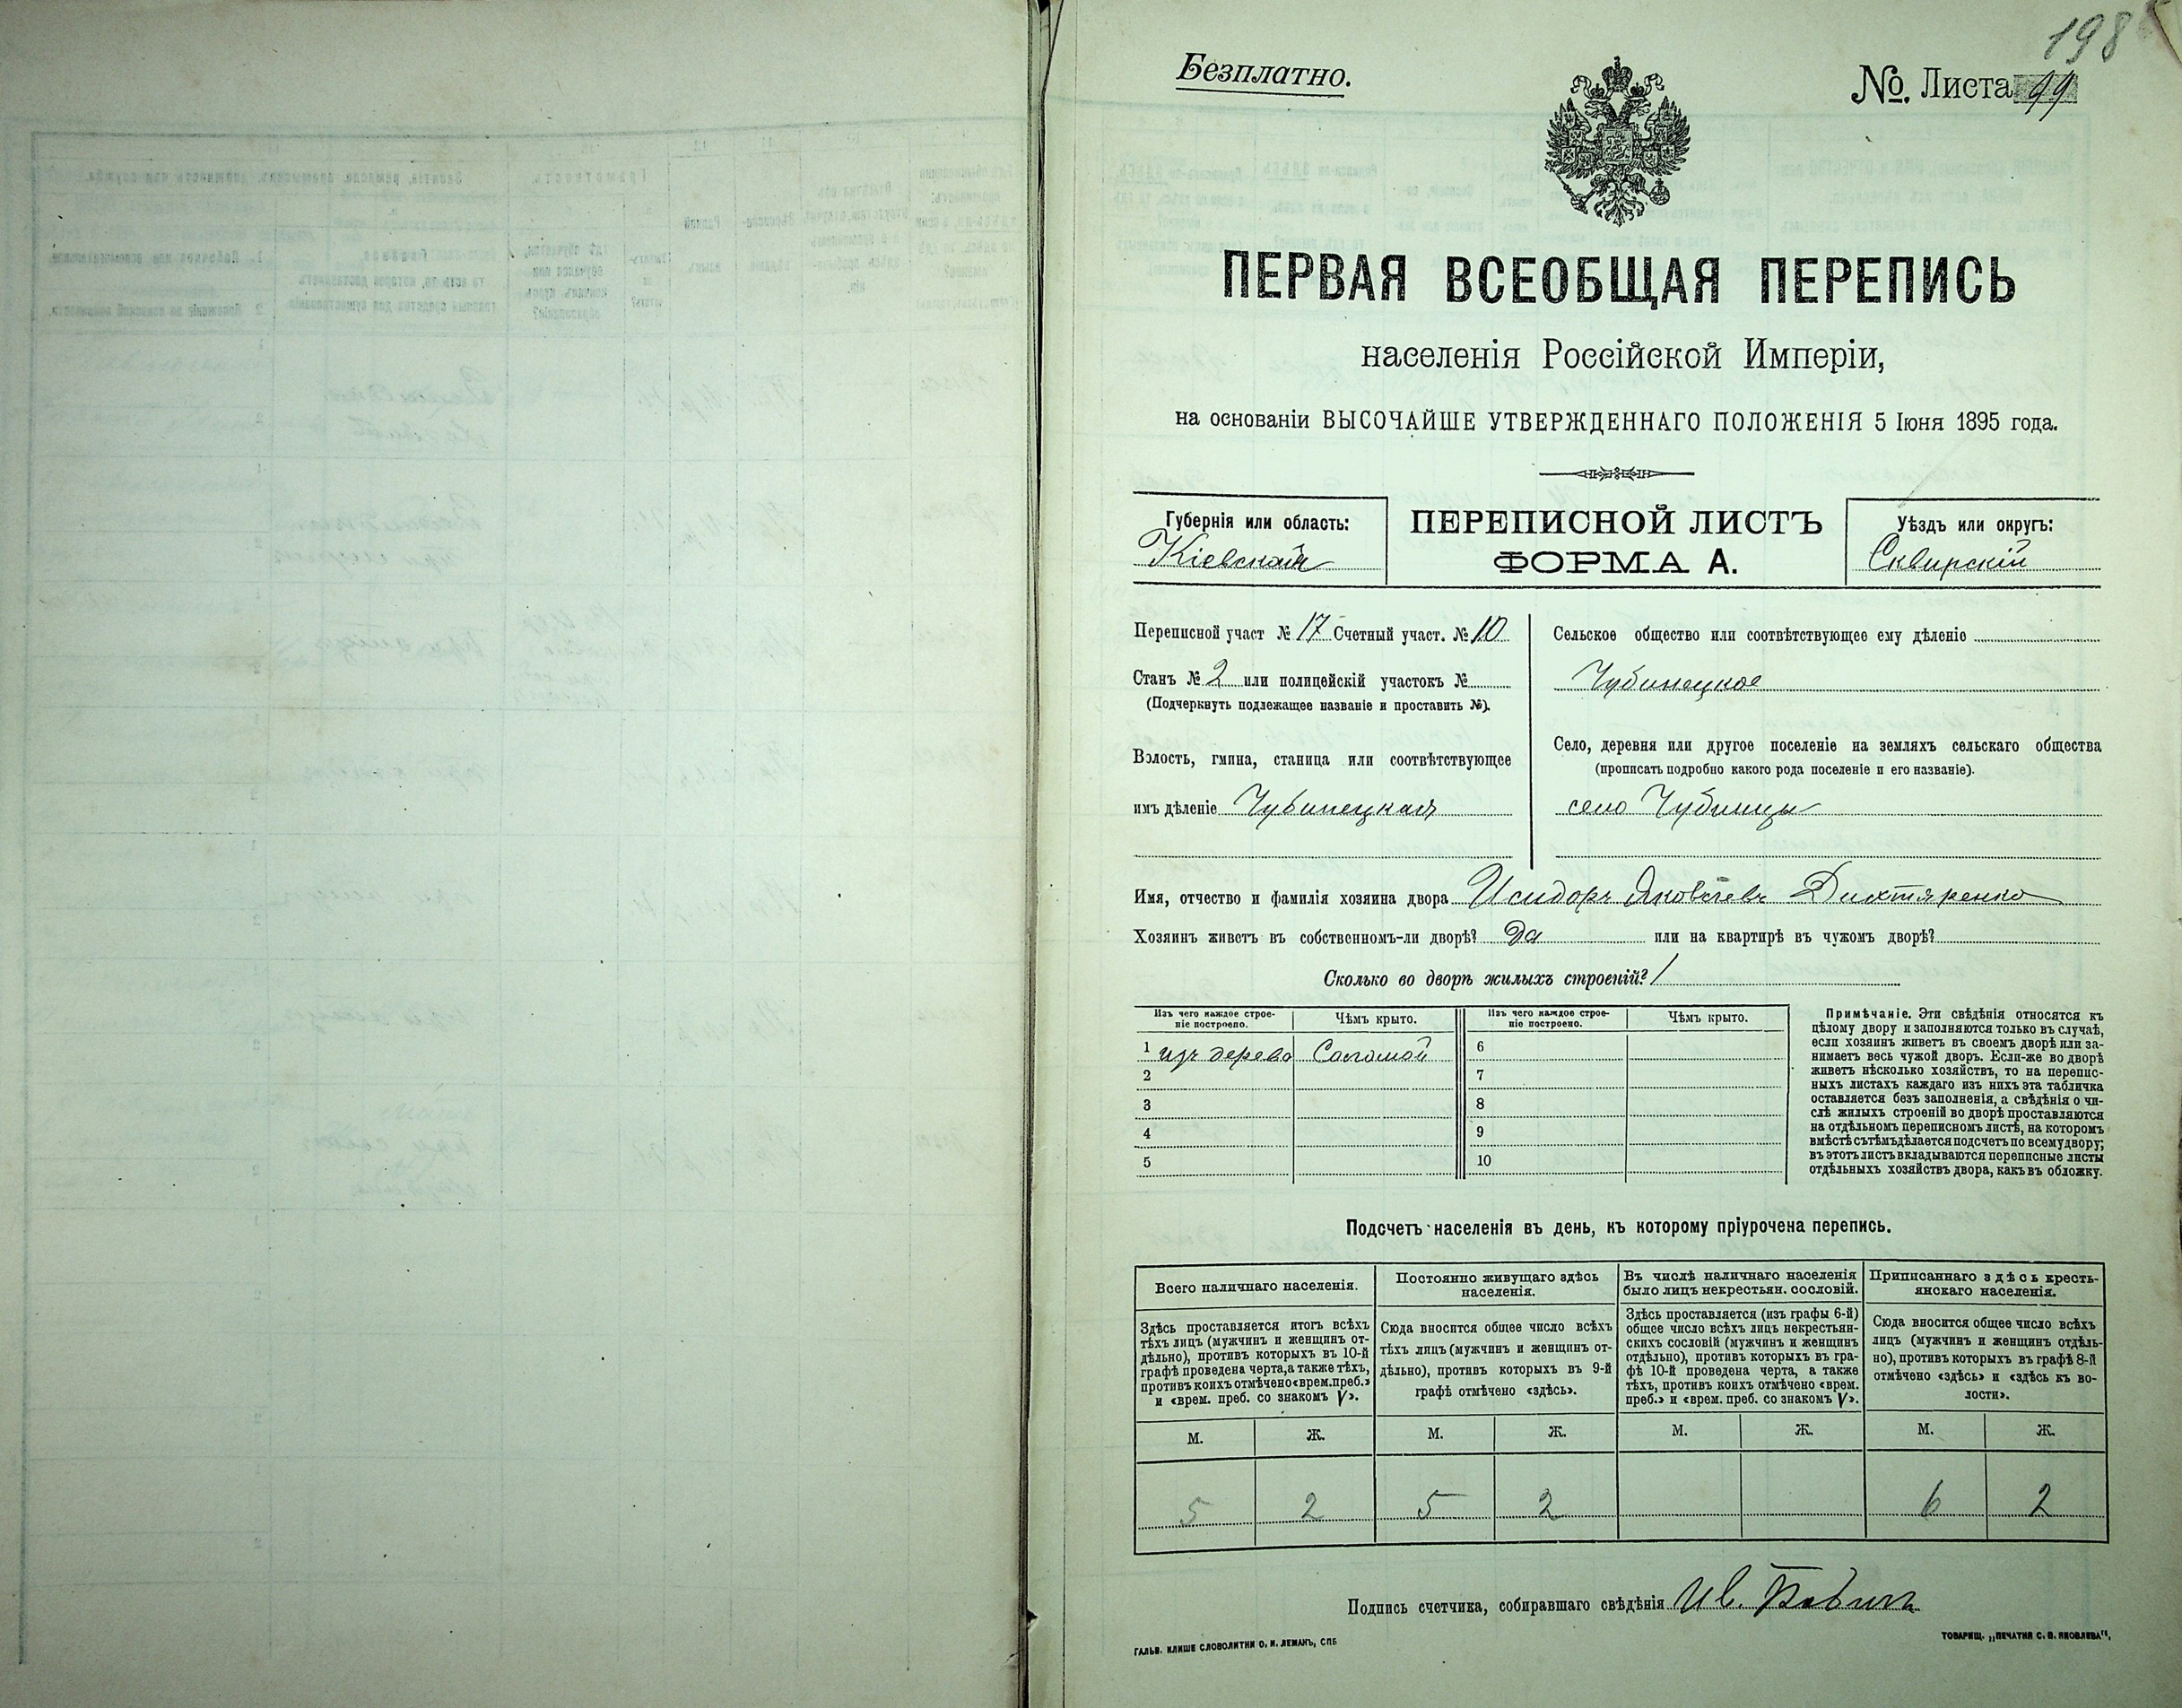 198
Безплатно.
№. Листа 99
ПЕРВАЯ ВСЕОБЩАЯ ПЕРЕПИСЬ
населенія Россійской Имперіи,
на основаніи ВЫСОЧАЙШЕ УТВЕРЖДЕННАГО ПОЛОЖЕНІЯ 5 Іюня 1895 года.
Губернія или область:
Кіевская
ПЕРЕПИСНОЙ ЛИСТЪ
ФОРМА А.
Уѣздъ или округъ:
Сквирскій
Переписной участ № 17 Счетный участ. № 10
Станъ № 2 или полицейскій участокъ №
(Подчеркнуть подлежащее названіе и проставить №).
Волость, гмина, станица или соотвѣтствующее
имъ дѣленіе Чубинецкая
Сельское общество или соотвѣтствующее ему дѣленіо
Чубинецкое
Село, деревня или другое поселеніе на земляхъ сельскаго общества
(прописать подробно какого рода поселеніе и его названіе).
село Чубинцы
Имя, отчество и фамилія хозяина двора Исидоръ Яковлевъ Дихтяренко
Хозяинъ живетъ въ собственномъ-ли дворѣ? Да или на квартирѣ въ чужомъ дворѣ?
Сколько во дворѣ жилыхъ строеній? 1
Изъ чего каждое строе-
ніе построено.
Чѣмъ крыто.
Изъ чего каждое строе-
ніе построено.
Чѣмъ крыто.
1 изъ дерева Соломой 6
2 7
3 8
4 9
5 10
Примѣчаніе. Эти свѣдѣнія относятся къ
цѣлому двору и заполняются только въ случаѣ,
если хозяинъ живетъ въ своемъ дворѣ или за-
нимаетъ весь чужой дворъ. Если-же во дворѣ
живетъ нѣсколько хозяйствъ, то на перепис-
ныхъ листахъ каждаго изъ нихъ эта табличка
оставляется безъ заполненія, а свѣдѣнія о чи-
слѣ жилыхъ строеній во дворѣ проставляются
на отдѣльномъ переписномъ листѣ, на которомъ
вмѣстѣ съ тѣмъ дѣлается подсчетъ по всему двору;
въ этотъ листъ вкладываются переписные листы
отдѣльныхъ хозяйствъ двора, какъ въ обложку.
Подсчетъ населенія въ день, къ которому пріурочена перепись.
Всего наличнаго населенія.
Здѣсь проставляется итогъ всѣхъ
тѣхъ лицъ (мужчинъ и женщинъ от-
дѣльно), противъ которыхъ въ 10-й
графѣ проведена черта, а также тѣхъ,
противъ коихъ отмѣчено «врем. преб.»
и «врем. преб. со знакомъ V».
Постоянно живущаго здѣсь
населенія.
Сюда вносится общее число всѣхъ
тѣхъ лицъ (мужчинъ и женщинъ от-
дѣльно), противъ которыхъ въ 9-й
графѣ отмѣчено «здѣсь».
Въ числѣ наличнаго населенія
было лицъ некрестьян. сословій.
Здѣсь проставляется (изъ графы 6-й)
общее число всѣхъ лицъ некрестьян-
скихъ сословій (мужчинъ и женщинъ
отдѣльно), противъ которыхъ въ гра-
фѣ 10-й проведена черта, а также
тѣхъ, противъ коихъ отмѣчено «врем.
преб.» и «врем. преб. со знакомъ V».
Приписаннаго здѣсь кресть-
янскаго населенія.
Сюда вносится общее число всѣхъ
лицъ (мужчинъ и женщинъ отдѣль-
но), противъ которыхъ въ графѣ 8-й
отмѣчено «здѣсь» и «здѣсь къ во-
лости».
М. Ж. М. Ж. М. Ж. М. Ж.
5 2 5 2 6 2
Подпись счетчика, собиравшаго свѣдѣнія Ив.
ГАЛЬВ. КЛИШЕ СЛОВОЛИТНИ О. И. ЛЕМАНЪ, СПБ
ТОВАРИЩ. „ПЕЧАТНЯ С. П. ЯКОВЛЕВА",